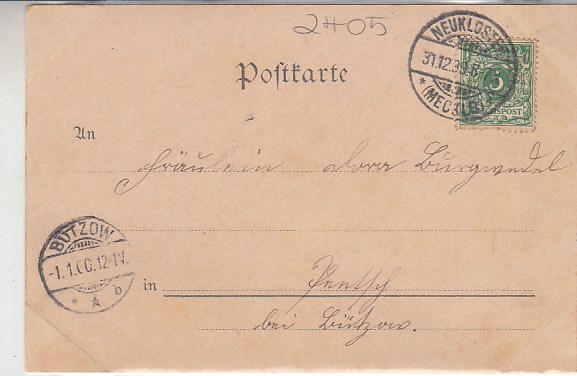 2405
NEUKLOSTER
31.12.99.6
* (MECKLB) *
5
REICHSPOST
Postkarte
An
Fräulein Dora Burgwedel
BÜTZOW
-1.1.00.12-1V.
* A b
in
bei Bützow.